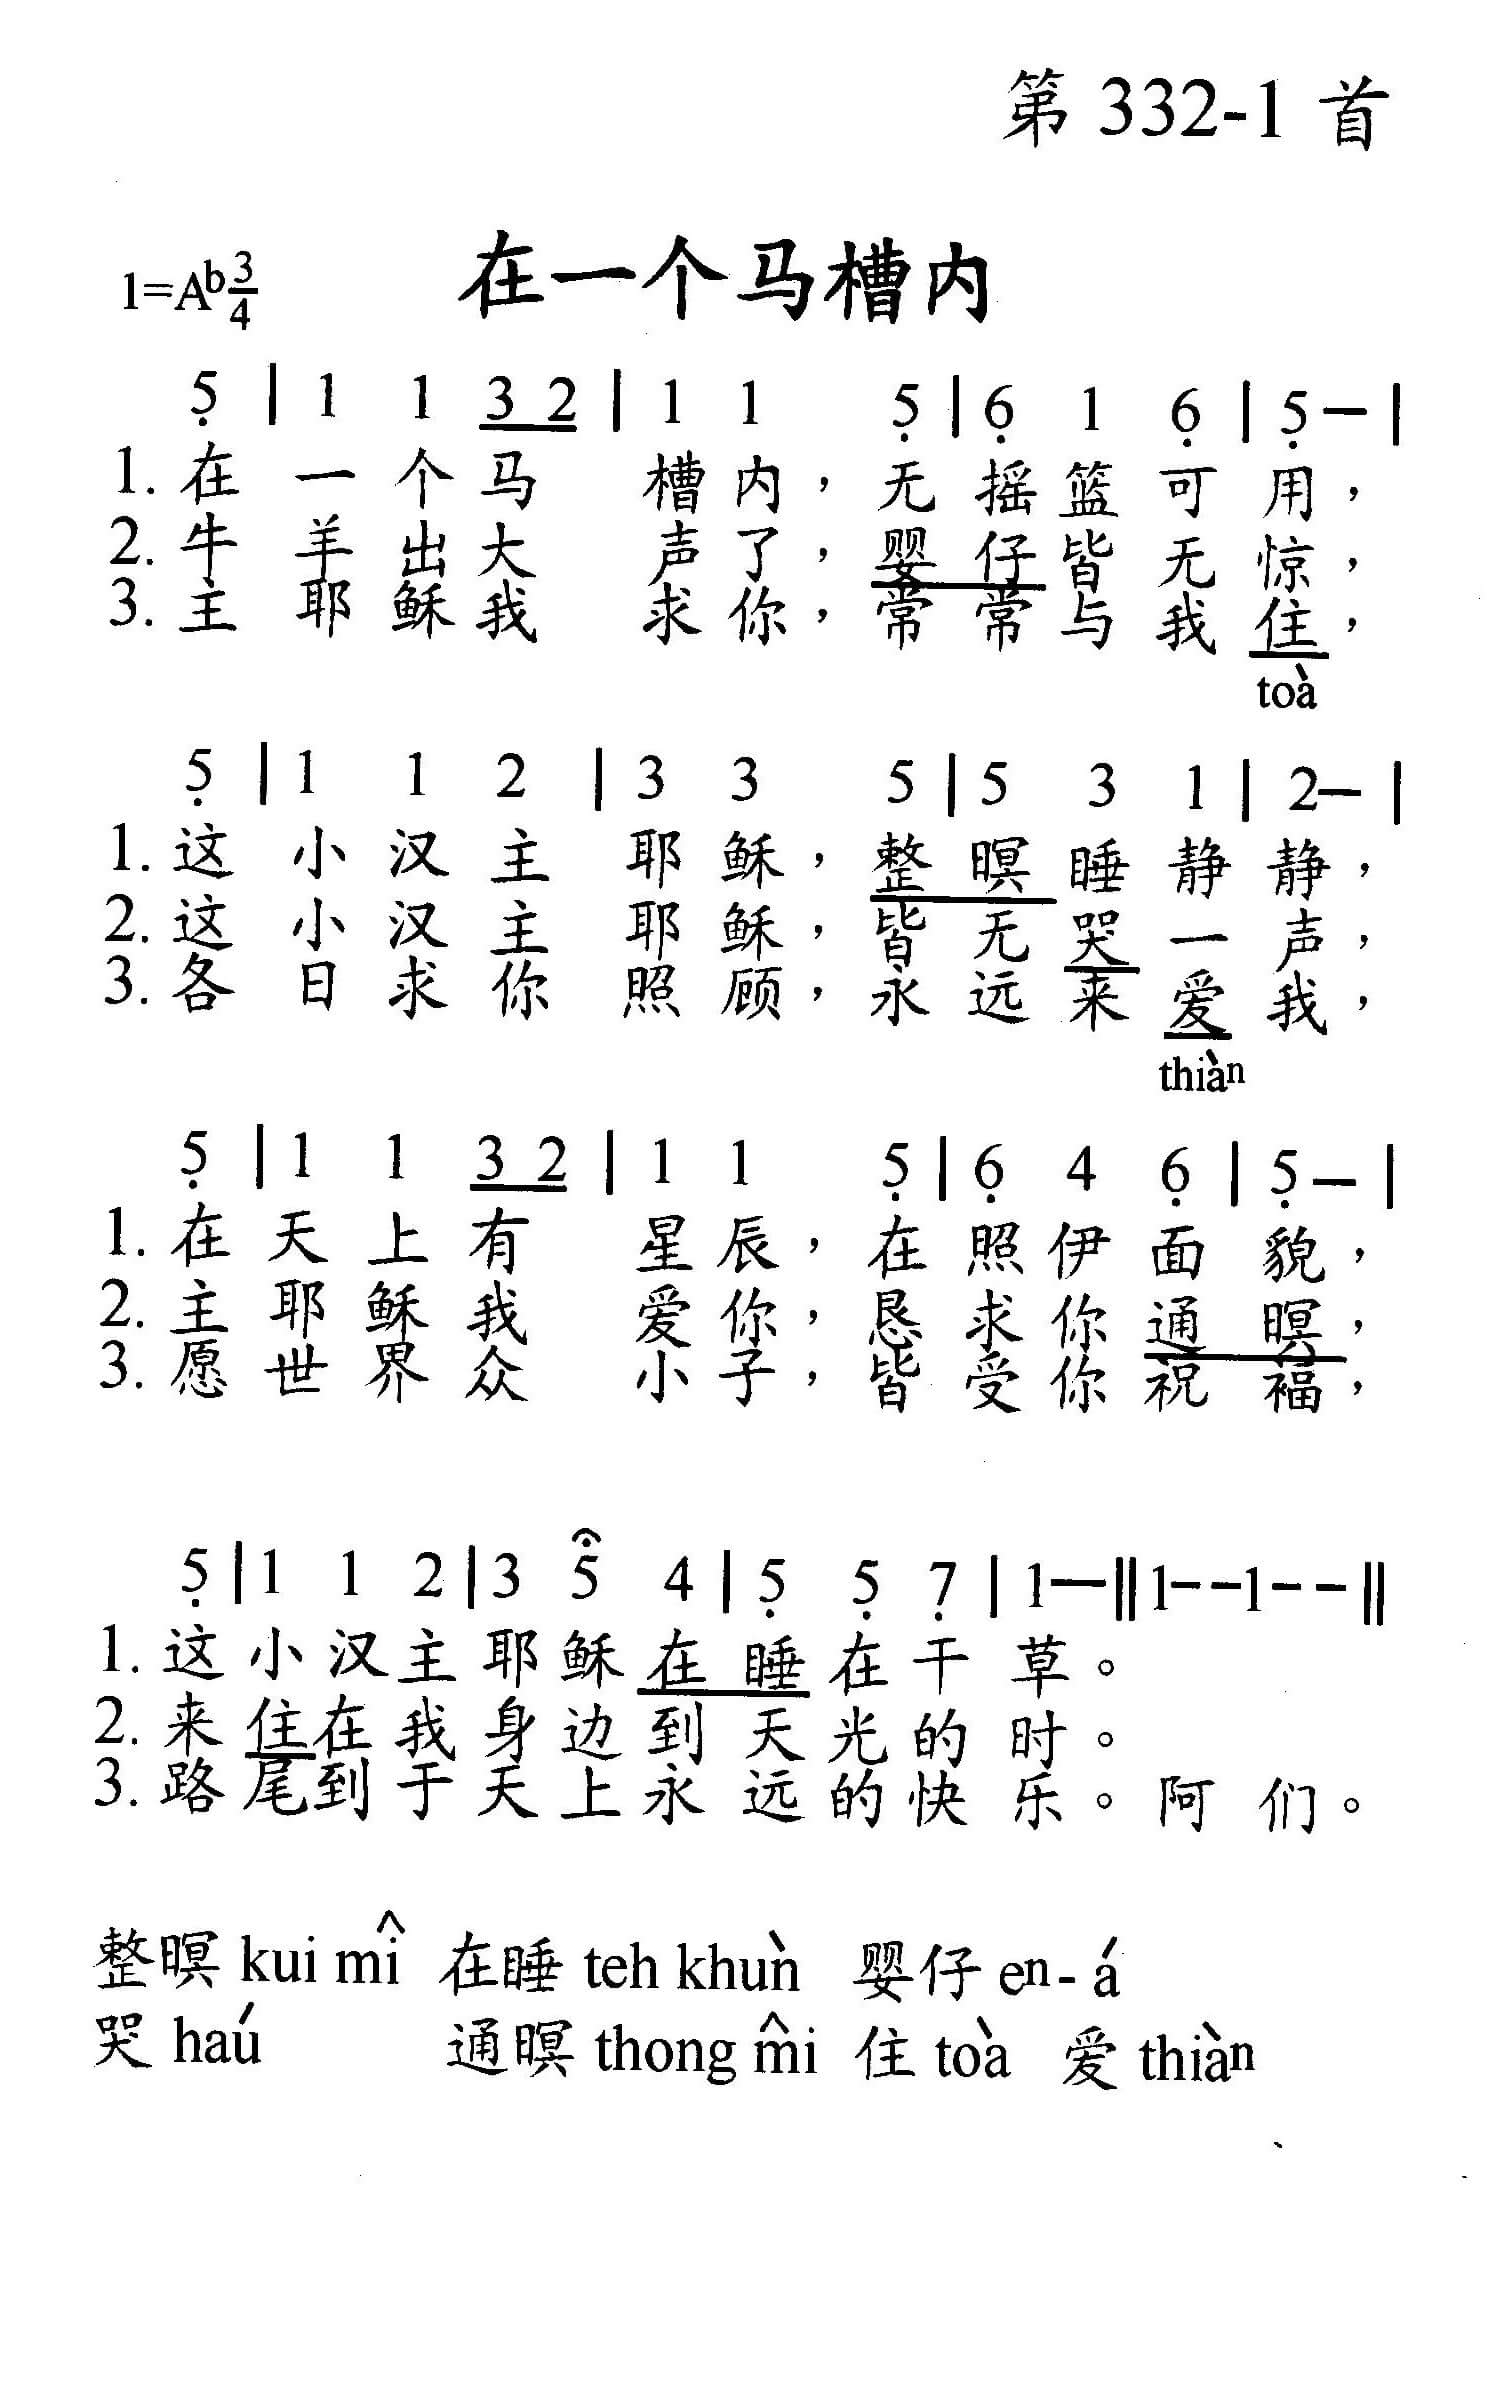 第 332-1 首
在一个马槽内
1=A♭ 3/4
5̣ | 1 1 3 2 | 1 1 5̣ | 6̣ 1 6̣ | 5̣ — |
1. 在一个马槽内，无摇篮可用，
2. 牛羊出大声了，婴仔皆无惊，
3. 主耶稣我求你，常常与我住，
toà
5̣ | 1 1 2 | 3 3 5 | 5 3 1 | 2— |
1. 这小汉主耶稣，整暝睡静静，
2. 这小汉主耶稣，皆无哭一声，
3. 各日求你照顾，永远来爱我，
thiàⁿ
5̣ | 1 1 3 2 | 1 1 5̣ | 6̣ 4 6̣ | 5̣ — |
1. 在天上有星辰，在照伊面貌，
2. 主耶稣我爱你，恳求你通暝，
3. 愿世界众小子，皆受你祝福，
5̣ | 1 1 2 | 3 5 4 | 5̣ 5̣ 7̣ | 1— ‖ 1--1-- ‖
1. 这小汉主耶稣在睡在干草。
2. 来住在我身边到天光的时。
3. 路尾到于天上永远的快乐。阿们。
整暝 kui mî 在睡 teh khùn 婴仔 eⁿ-á
哭 haú 通暝 thong mî 住 toà 爱 thiàⁿ